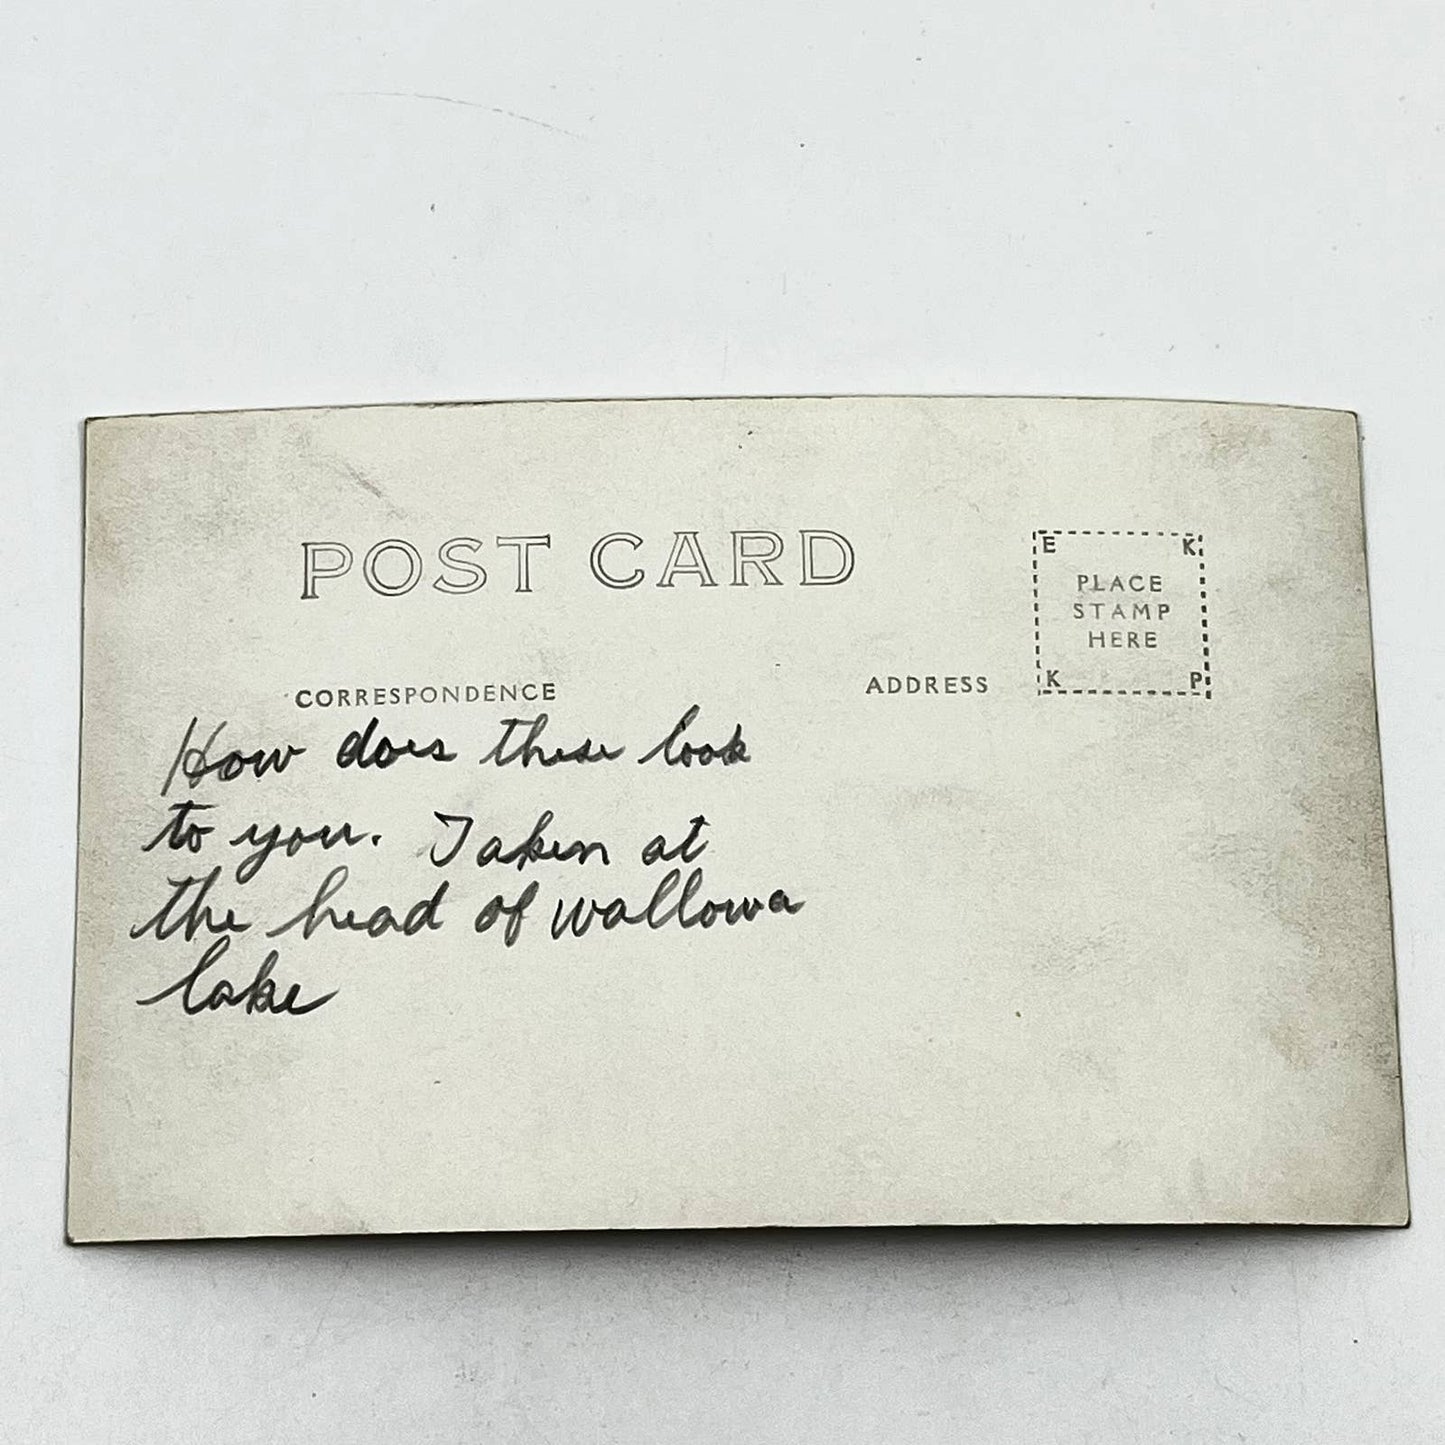 POST CARD
E K
PLACE
STAMP
HERE
K P
CORRESPONDENCE
ADDRESS
How does these look
to you. Taken at
the head of wallowa
lake